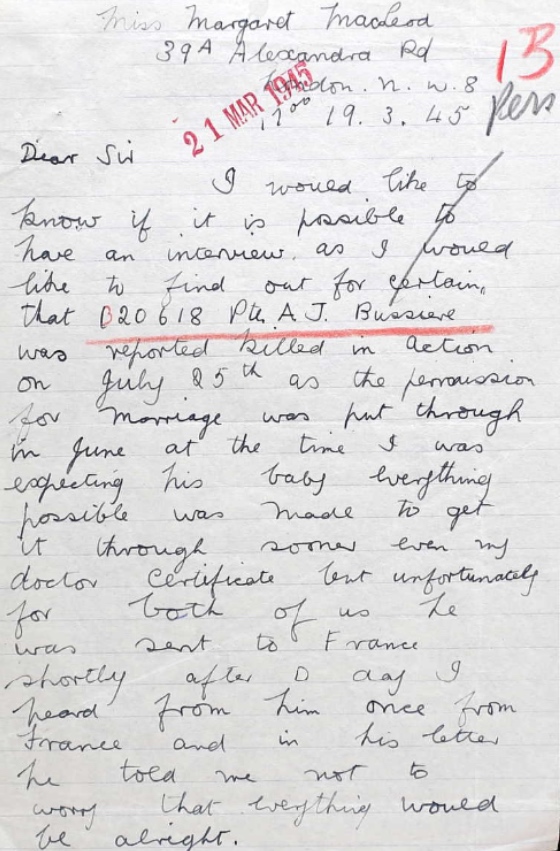 Miss Margaret Macleod
39A Alexandra Rd
London. N. W. 8
21 MAR 1945
19. 3. 45
13
Pers
Dear Sir
I would like to
know if it is possible to
have an interview. as I would
like to find out for certain,
that D20618 Pte A. J. Bussiere
was reported killed in action
on July 25th as the permission
for Marriage was put through
in June at the time I was
expecting his baby everything
possible was made to get
it through sooner even my
doctor certificate but unfortunately
for both of us he
was sent to France
shortly after D day I
heard from him once from
France and in his letter
he told me not to
worry that everything would
be alright.